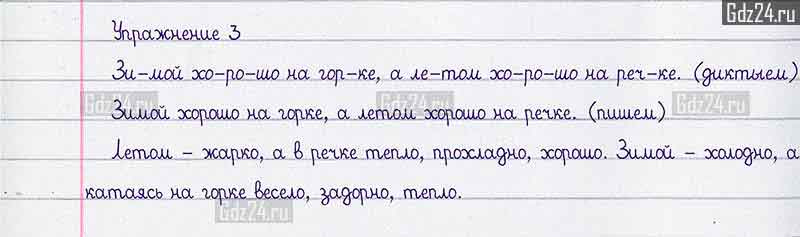 Gdz24.ru
Упражнение 3
Зи-мой хо-ро-шо на гор-ке, а ле-том хо-ро-шо на реч-ке. (диктуем)
Gdz24.ru Gdz24.ru Gdz24.ru
Зимой хорошо на горке, а летом хорошо на речке. (пишем)
Летом – жарко, а в речке тепло, прохладно, хорошо. Зимой – холодно, а
катаясь на горке весело, задорно, тепло.
Gdz24.ru